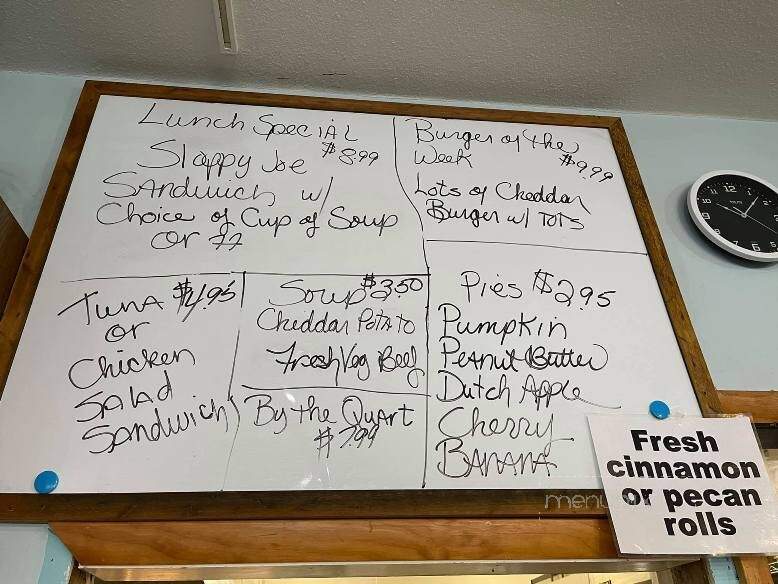 Lunch Special
Sloppy Joe $8.99
Sandwich w/
Choice of Cup of Soup
or FF
Burger of the
Week $9.99
Lots of Cheddar
Burger w/ Tots
Tuna $4.95
or
Chicken
Salad
Sandwich
Soup $3.50
Cheddar Potato
Fresh Veg Beef
By the Quart
$7.99
Pies $2.95
Pumpkin
Peanut Butter
Dutch Apple
Cherry
Banana
Fresh
cinnamon
or pecan
rolls
menu
12